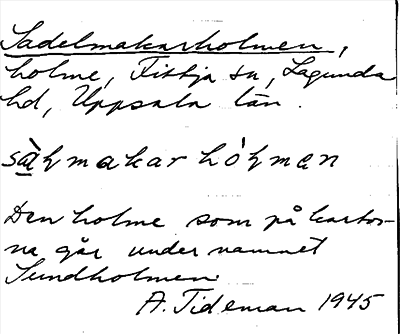 Sadelmakarholmen,
holme, Fittja sn, Lagunda
hd, Uppsala län.
sàɫmakar hóɫmen
Den holme som på kartor-
na går under namnet
Sundholmen.
A. Tideman 1945